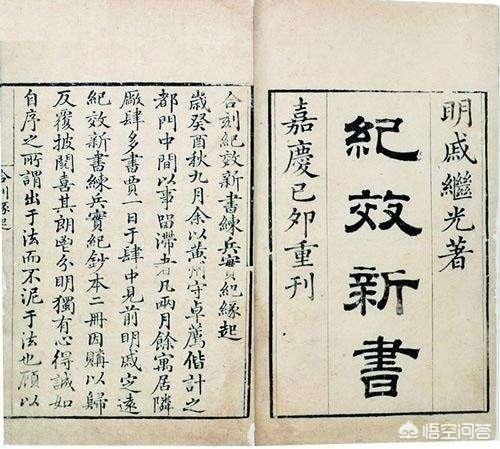 明戚繼光著
紀效新書
嘉慶已夘重刊
合刻紀效新書練兵實紀緣起
歲癸酉秋九月余以黃州守卓薦偕計之
都門中間以事畱滯者凡兩月餘寓居隣
廠肆多書賈一日于肆中見前明戚定遠
紀效新書練兵實紀鈔本二冊因購以歸
反覆披閱喜其朗鬯分明獨有心得誠如
自序之所謂出于法而不泥于法也顧以
緣起
悟空问答